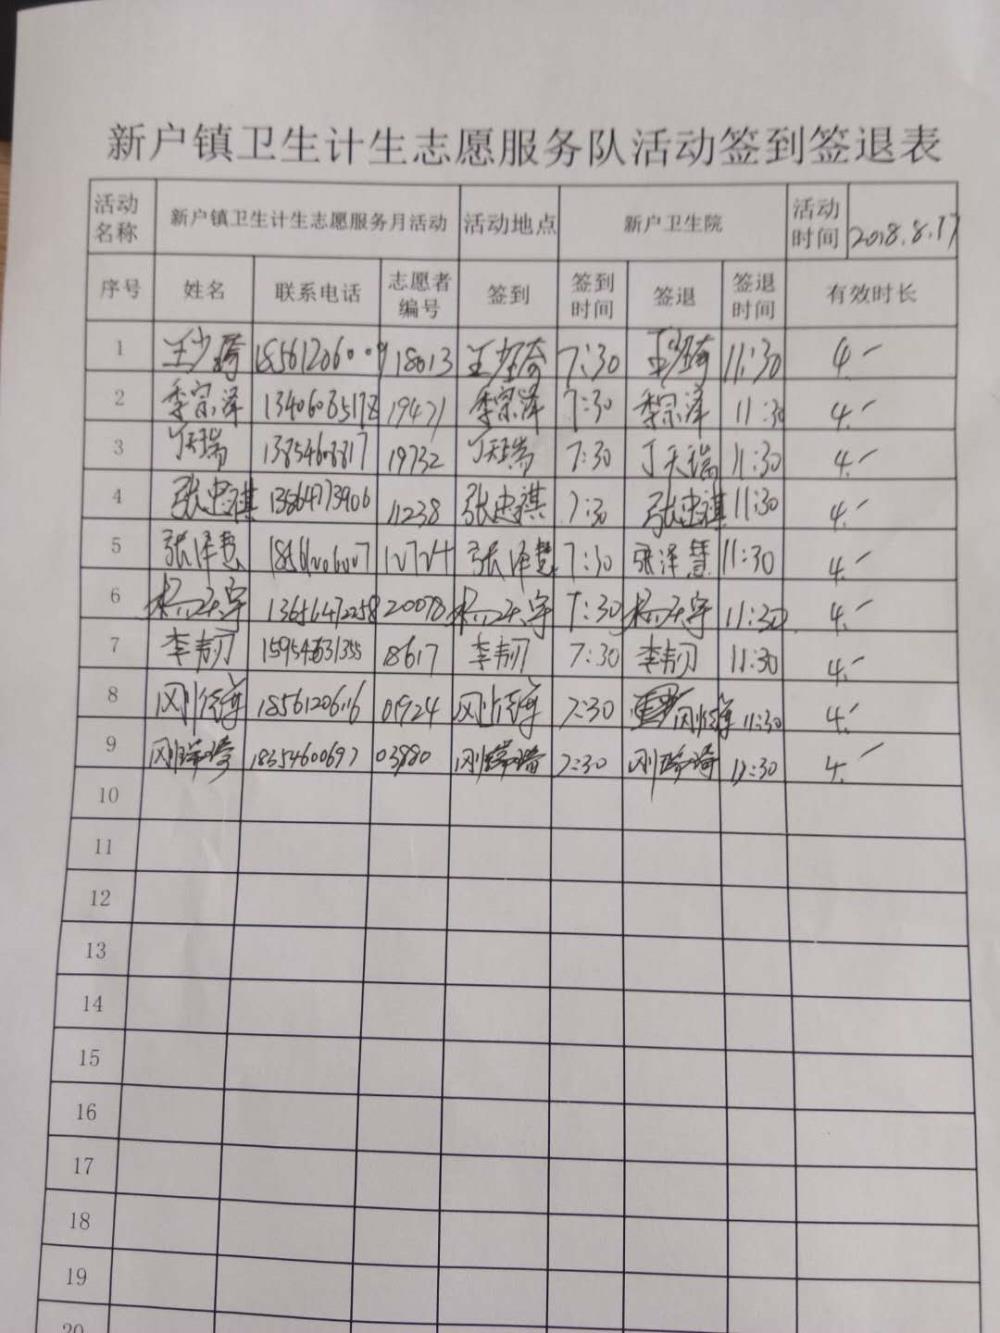 新户镇卫生计生志愿服务队活动签到签退表
活动名称 新户镇卫生计生志愿服务月活动 活动地点 新户卫生院 活动时间 2018.8.17
序号 姓名 联系电话 志愿者编号 签到 签到时间 签退 签退时间 有效时长
1 18561206009 18013 7:30 11:30 4.
2 李宗泽 13406085178 19471 李宗泽 7:30 李宗泽 11:30 4.
3 丁天瑞 13854608817 19732 丁天瑞 7:30 丁天瑞 11:30 4.
4 张忠祺 13864773906 11238 张忠祺 7:30 张忠祺 11:30 4.
5 张泽慧 张泽慧 7:30 张泽慧 11:30 4.
6 杨天宇 13656472258 20078 杨天宇 7:30 杨天宇 11:30 4.
7 李韧 18617 李韧 7:30 李韧 11:30 4.
8 18561206116 01924 7:30 11:30 4.
9 18354600697 03980 7:30 11:30 4.
10
11
12
13
14
15
16
17
18
19
20